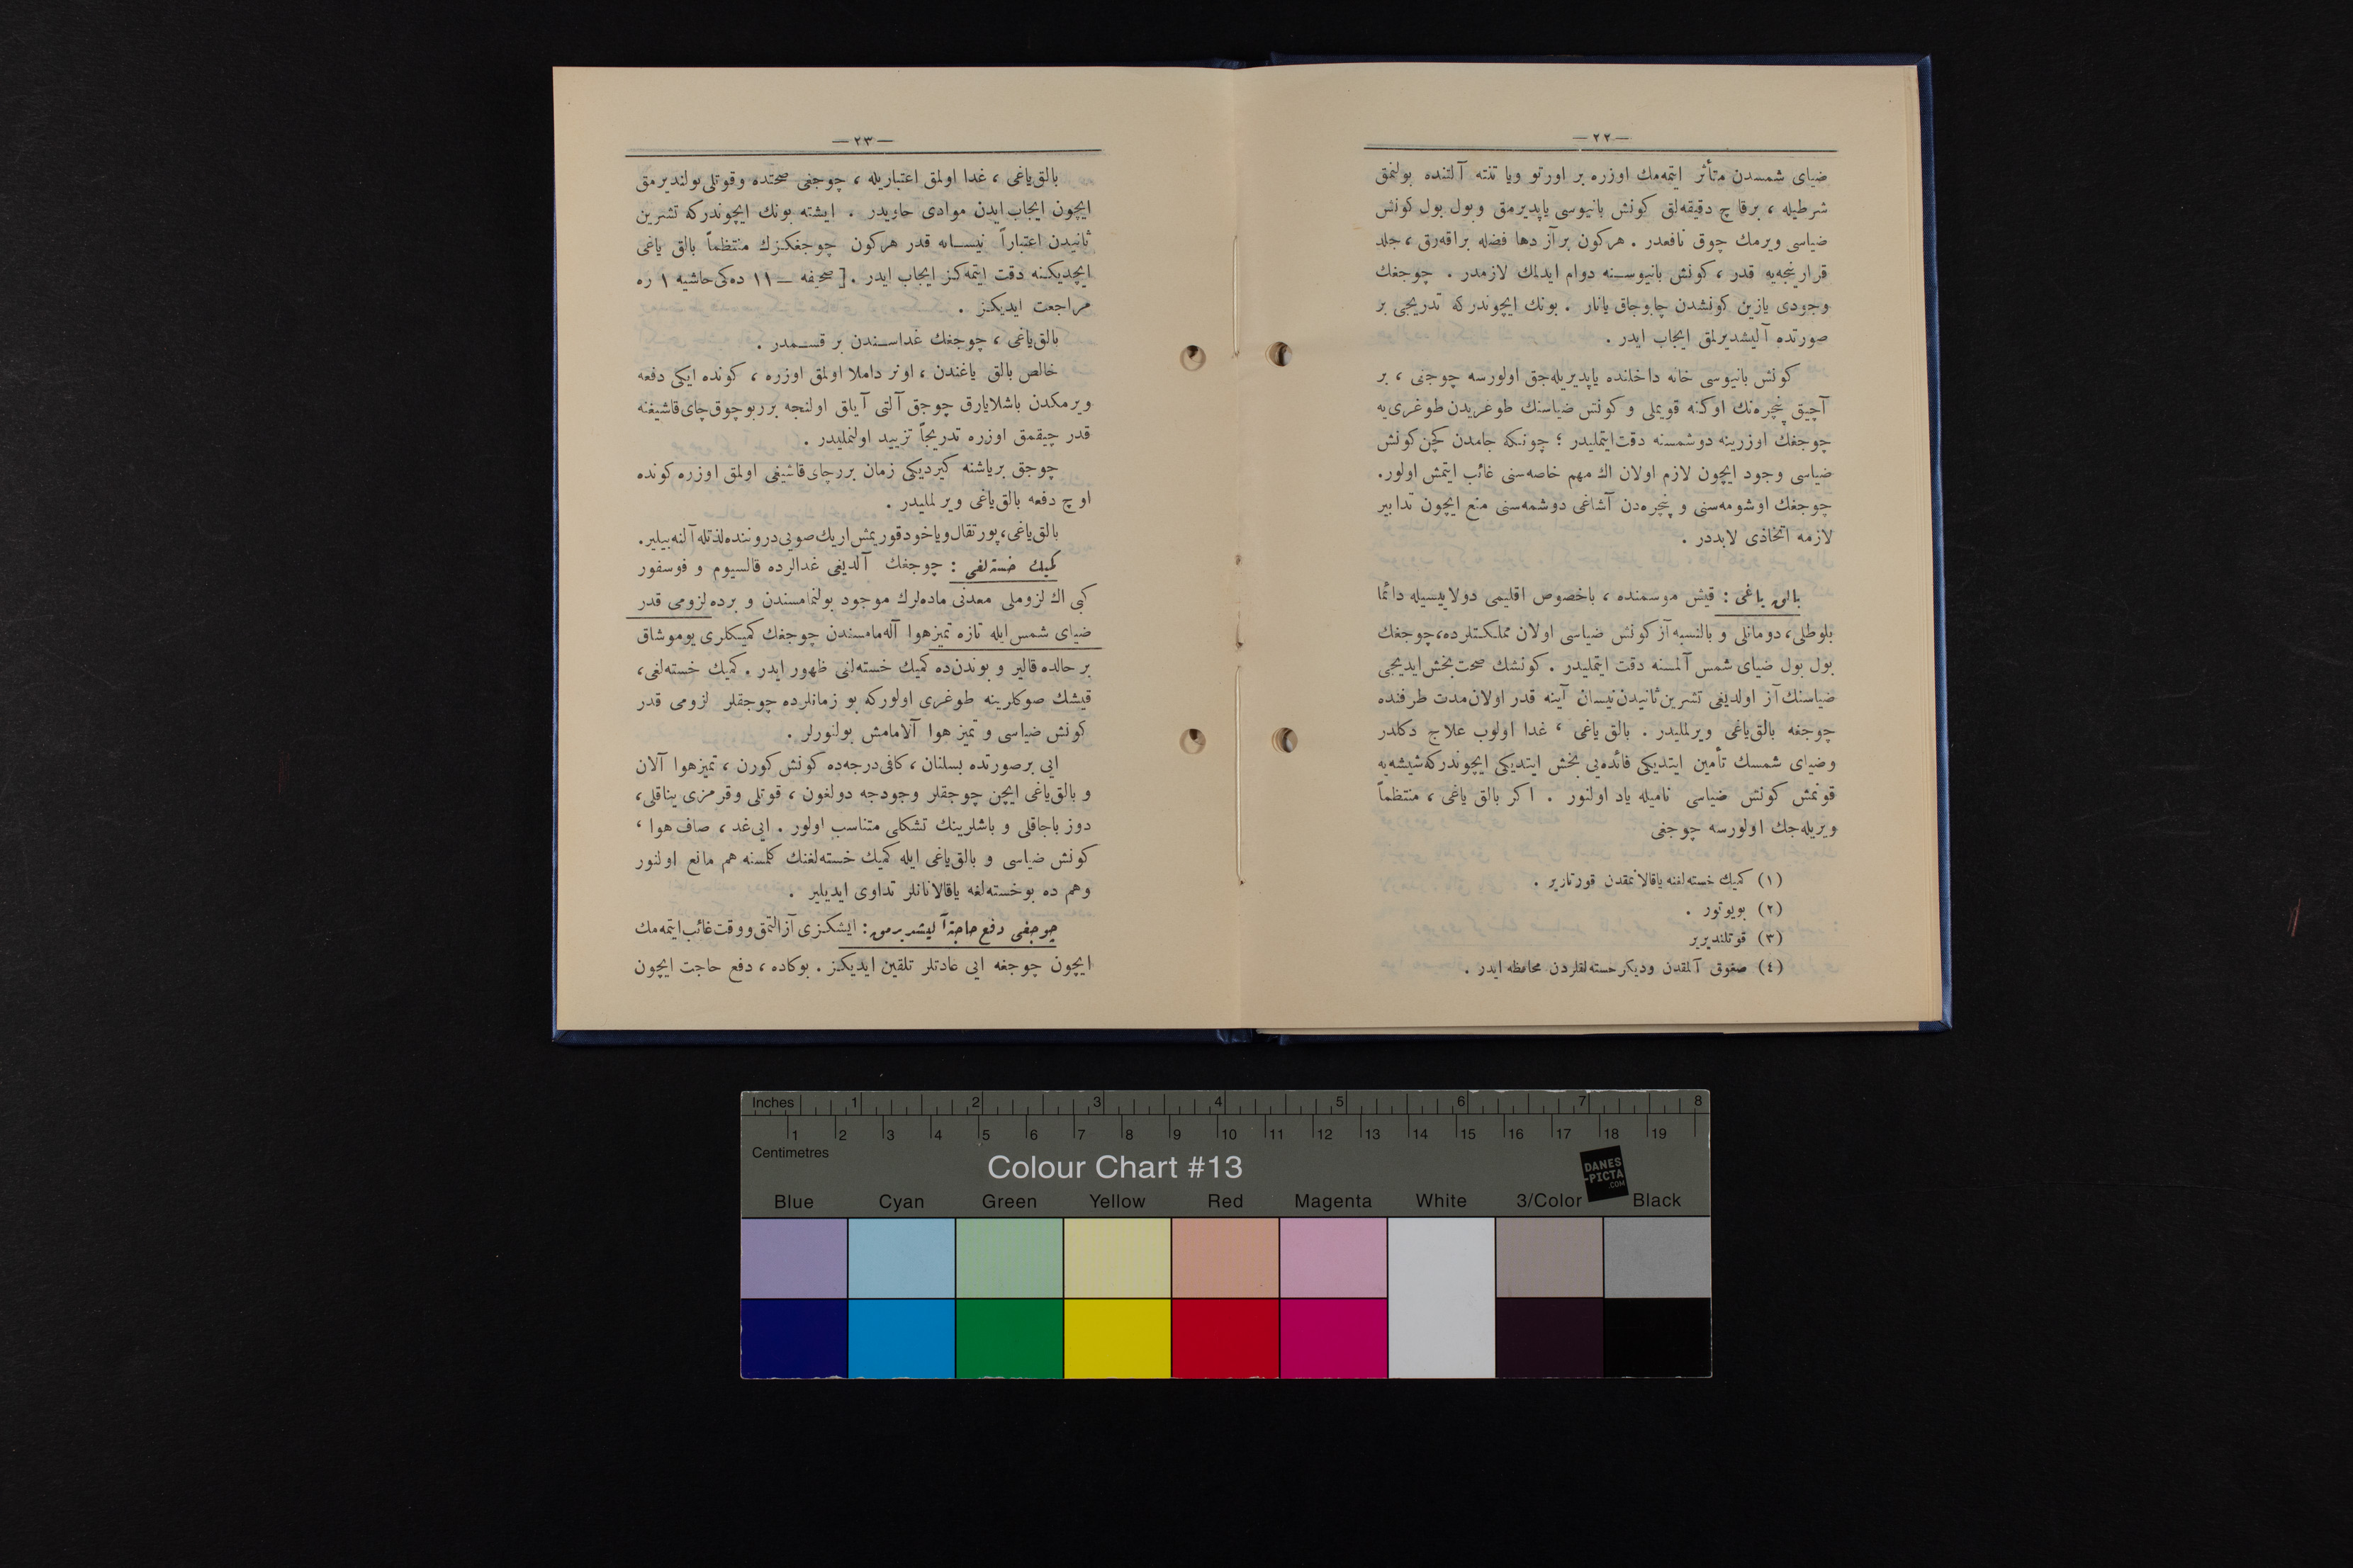 — ٢٢ —
ضیای شمسدن متأثر ایتمه‌مك اوزره بر اورتو ویا تنته آلتنده بولنمق
شرطیله ، برقاچ دقیقه‌لق كونش بانیوسی یاپدیرمق وبول بول كونش
ضیاسی ویرمك چوق نافعدر . هركون برآز دها فضله براقه‌رق ، جلد
قرارنجه‌یه قدر ، كونش بانیوسـنه دوام ایدلمك لازمدر . چوجغك
وجودی یازین كونشدن چابوجاق یانار . بونك ایچوندركه تدریجی بر
صورتده آلیشدیرلمق ایجاب ایدر .
كونش بانیوسی خانه داخلنده یاپدیریله‌جق اولورسه چوجغی ، بر
آچیق پنجره‌نك اوكنه قویملی و كونش ضیاسنك طوغریدن طوغری‌یه
چوجغك اوزرینه دوشمسنه دقت ایتملیدر ؛ چونكه جامدن كچن كونش
ضیاسی وجود ایچون لازم اولان اك مهم خاصه‌سنی غائب ایتمش اولور.
چوجغك اوشومه‌سنی و پنجره‌دن آشاغی دوشمه‌سنی منع ایچون تدابیر
لازمه اتخاذی لابددر .
بالق یاغی : قیش موسمنده ، باخصوص اقلیمی دولاییسیله دائما
بلوطلی، دومانلی و بالنسبه آز كونش ضیاسی اولان مملكتلرده، چوجغك
بول بول ضیای شمس آلمسنه دقت ایتملیدر . كونشك صحت‌بخش ایدیجی
ضیاسنك آز اولدیغی تشرین ثانیدن نیسان آینه قدر اولان مدت ظرفنده
چوجغه بالق‌یاغی ویرلملیدر . بالق یاغی ، غدا اولوب علاج دكلدر
وضیای شمسك تأمین ایتدیكی فائده‌یی بخش ایتدیكی ایچوندركه شیشه‌یه
قونمش كونش ضیاسی نامیله یاد اولنور . اكر بالق یاغی ، منتظماً
ویریله‌جك اولورسه چوجغی
(١) كمیك خسته‌لغنه یاقالانمقدن قورتاریر .
(٢) بویوتور .
(٣) قوتلندیریر
(٤) صغوق آلمقدن ودیكر خسته‌لقلردن محافظه ایدر .
— ٢٣ —
بالق‌یاغی ، غدا اولمق اعتباریله ، چوجغی صحتده وقوتلی بولندیرمق
ایچون ایجاب‌ایدن موادی حاویدر . ایشته بونك ایچوندركه تشرین
ثانیدن اعتباراً نیسـانه قدر هركون چوجغكزك منتظماً بالق یاغی
ایچدیكنه دقت ایتمه‌كز ایجاب ایدر . [ صحیفه — ١١ ده‌كی حاشیه ١ ره
مراجعت ایدیكز .
بالق‌یاغی ، چوجغك غداسـندن بر قسـمدر .
خالص بالق یاغندن ، اونر داملا اولمق اوزره ، كونده ایكی دفعه
ویرمكدن باشلایارق چوجق آلتی آیلق اولنجه بربوچوق چای قاشیغنه
قدر چیقمق اوزره تدریجاً تزیید اولنملیدر .
چوجق بریاشنه كیردیكی زمان بررچای قاشیغی اولمق اوزره كونده
اوچ دفعه بالق‌یاغی ویرلملیدر .
بالق‌یاغی، پورتقال ویاخود قوریمش اریك صویی دروننده لذتله آلنه‌بیلیر.
كمیك خسته‌لغی : چوجغك آلدیغی غدالرده قالسیوم و فوسفور
كبی اك لزوملی معدنی ماده‌لرك موجود بولنمامسندن و برده لزومی قدر
ضیای شمس ایله تازه تمیزهوا آله‌مامسندن چوجغك كمیكلری یوموشاق
بر حالده قالیر و بوندن‌ده كمیك خسته‌لغی ظهور ایدر . كمیك خسته‌لغی،
قیشك صوكلرینه طوغری اولوركه بو زمانلرده چوجقلر لزومی قدر
كونش ضیاسی و تمیز هوا آلامامش بولنورلر .
ایی برصورتده بسلنان ، كافی درجه‌ده كونش كورن ، تمیزهوا آلان
و بالق‌یاغی ایچن چوجقلر وجودجه دولغون ، قوتلی وقرمزی یناقلی،
دوز باجاقلی و باشلرینك تشكلی متناسب اولور . ایی‌غد ، صاف هوا ،
كونش ضیاسی و بالق‌یاغی ایله كمیك خسته‌لغنك كلمسنه هم مانع اولنور
وهم ده بوخسته‌لغه یاقالانانلر تداوی ایدیلیر .
چوجغی دفع حاجته آلیشدیرمق : ایشكزی آزالتمق ووقت غائب ایتمه‌مك
ایچون چوجغه ایی عادتلر تلقین ایدیكز . بوكاده ، دفع حاجت ایچون
Inches 1 2 3 4 5 6 7 8
1 2 3 4 5 6 7 8 9 10 11 12 13 14 15 16 17 18 19
Centimetres
Colour Chart #13
DANES
-PICTA
.COM
Blue Cyan Green Yellow Red Magenta White 3/Color Black